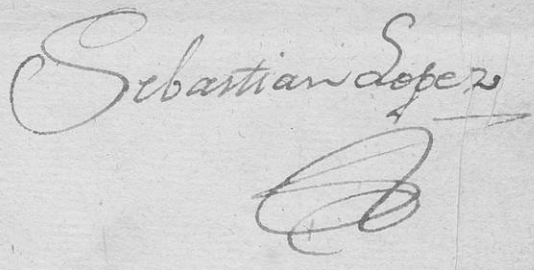 Sebastian Lopez